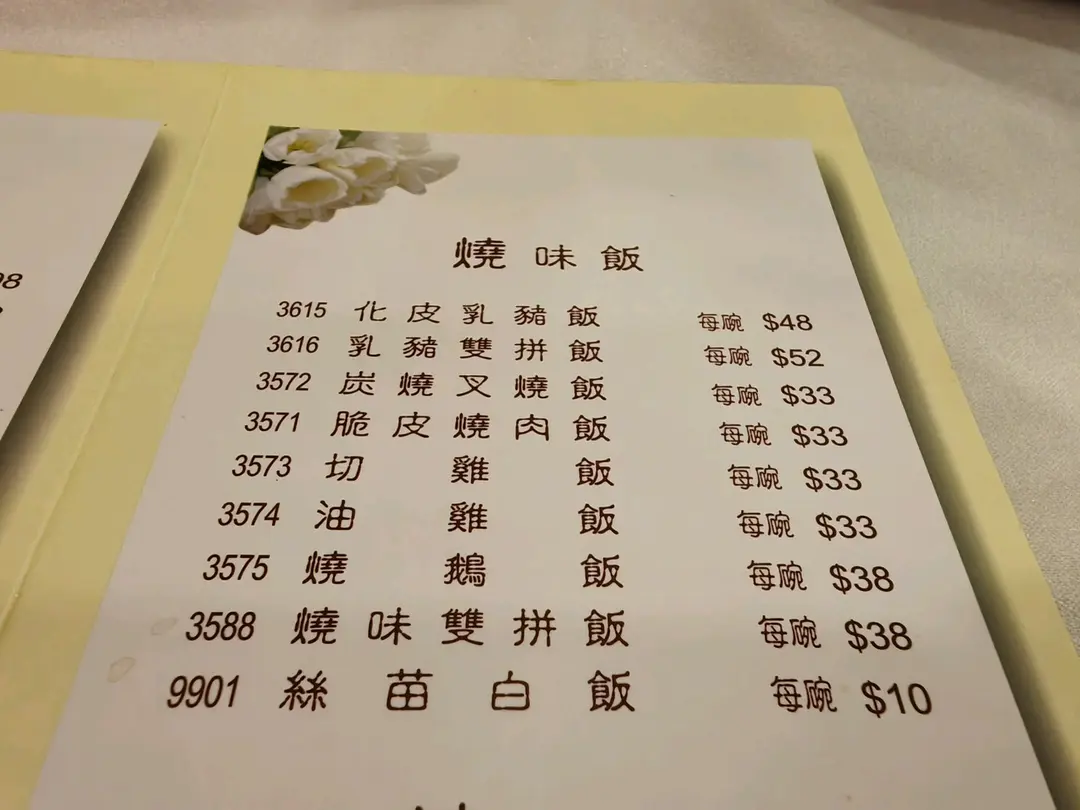 燒味飯
3615 化皮乳豬飯 每碗 $48
3616 乳豬雙拼飯 每碗 $52
3572 炭燒叉燒飯 每碗 $33
3571 脆皮燒肉飯 每碗 $33
3573 切雞飯 每碗 $33
3574 油雞飯 每碗 $33
3575 燒鵝飯 每碗 $38
3588 燒味雙拼飯 每碗 $38
9901 絲苗白飯 每碗 $10